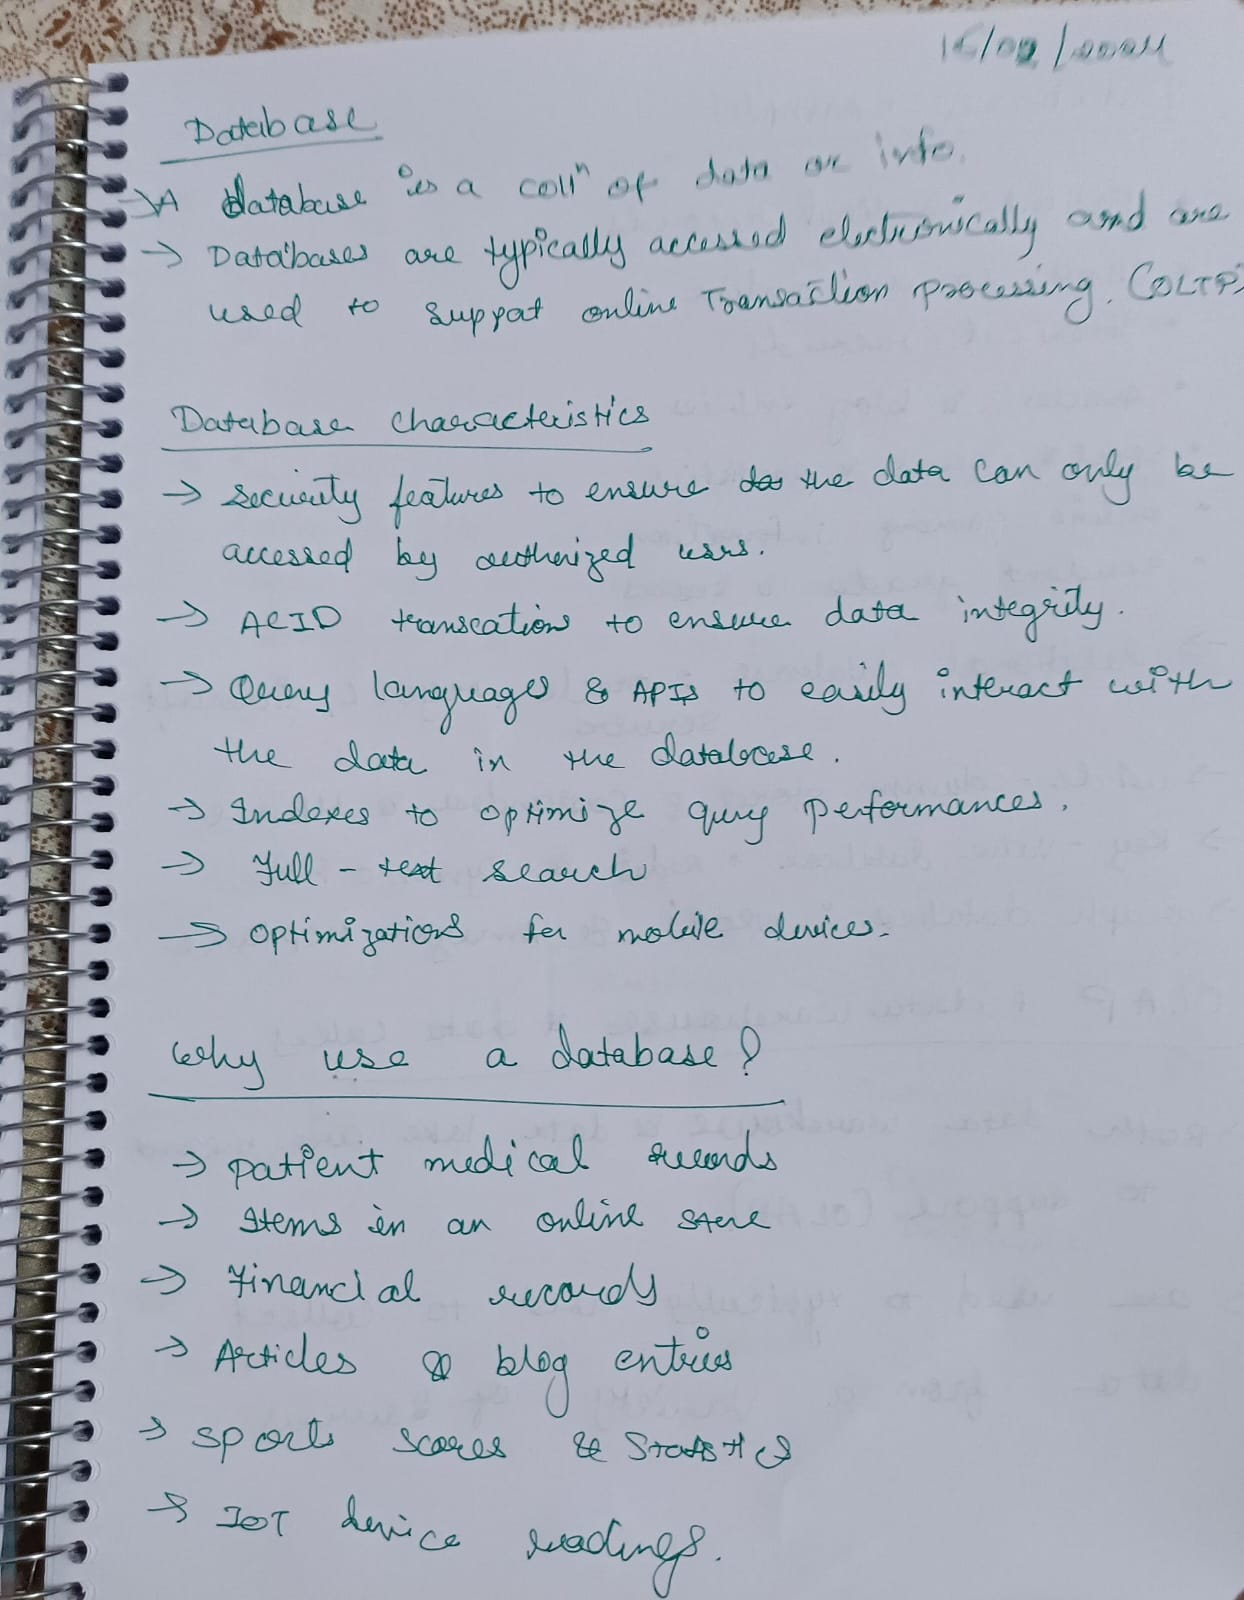 Database
→ A database is a collⁿ of data or info.
→ Databases are typically accessed electronically and are
used to suppot online Transaction processing. (OLTP)
Database characteristics
→ Security features to ensure the data can only be
accessed by authorized users.
→ ACID transcations to ensure data integrity.
→ Query languages & APIs to easily interact with
the data in the database.
→ Indexes to optimize qury performances.
→ Full - text search
→ Optimizations for mobile devices.
Why use a database?
→ patient medical records
→ Items in an online store
→ Financial records
→ Articles & blog entries
→ sports scores & Statistics
→ IOT device readings.